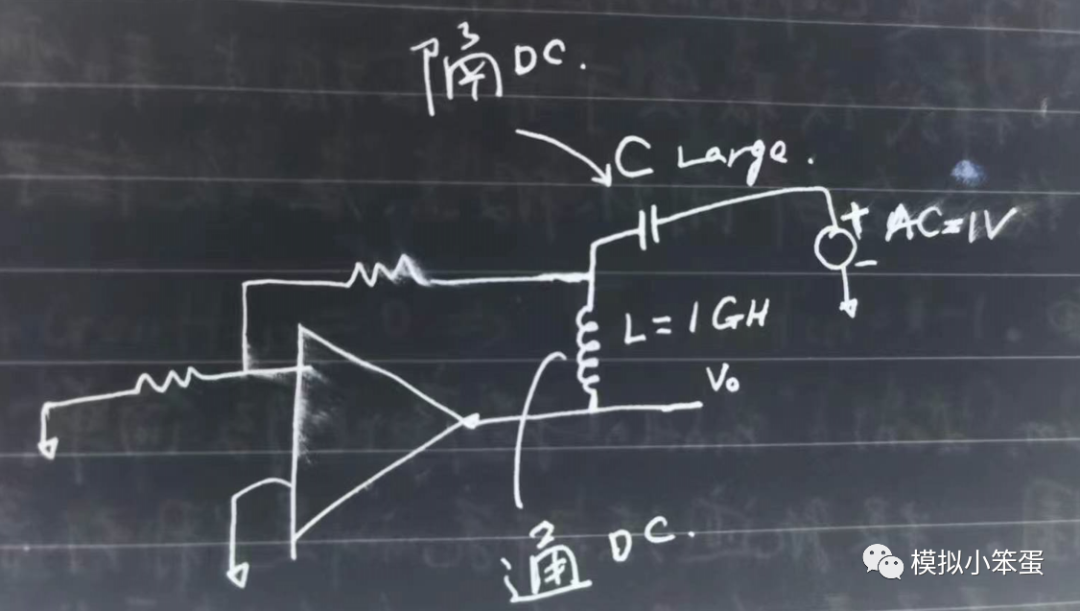 隔DC.
C Large.
AC=1V
L=1GH
Vo
通DC.
模拟小笨蛋